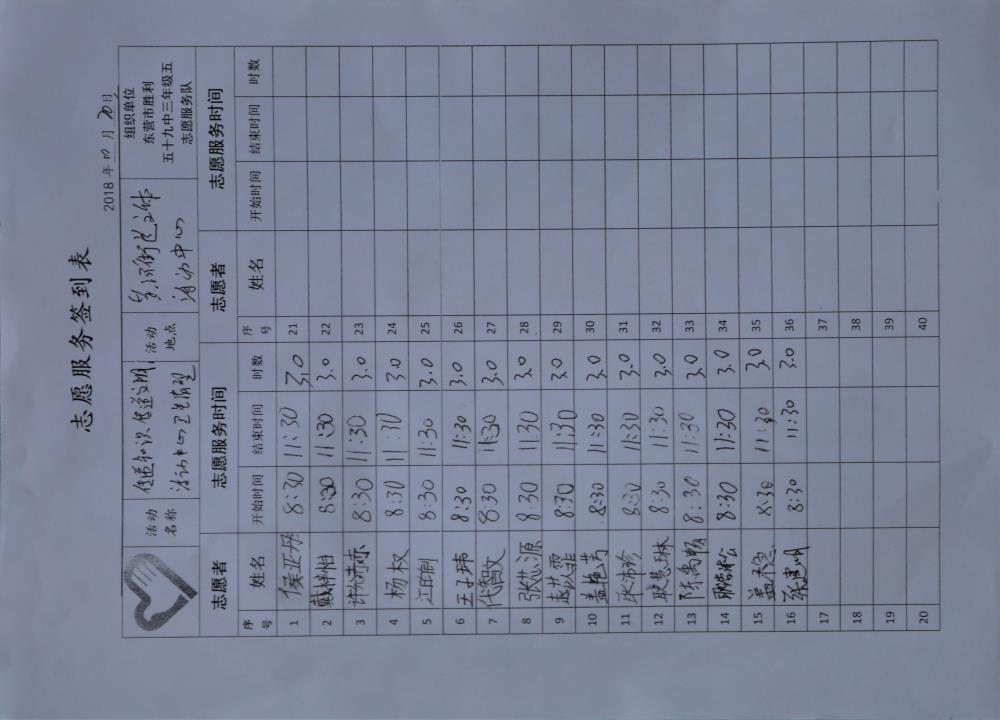 志愿服务签到表
2018年10月20日
活动名称 传递知识.传递文明 活动中心卫生清理 活动地点 文体活动中心 组织单位 东营市胜利五十九中三年级五志愿服务队
志愿者 志愿服务时间 志愿者 志愿服务时间
序号 姓名 开始时间 结束时间 时数 序号 姓名 开始时间 结束时间 时数
1 侯亚丹 8:30 11:30 3.0 21
2 戴梓怡 8:30 11:30 3.0 22
3 8:30 11:30 3.0 23
4 杨权 8:30 11:30 3.0 24
5 8:30 11:30 3.0 25
6 王子玮 8:30 11:30 3.0 26
7 代智文 8:30 11:30 3.0 27
8 张芯源 8:30 11:30 3.0 28
9 赵芷霏 8:30 11:30 3.0 29
10 盖艳芳 8:30 11:30 3.0 30
11 8:30 11:30 3.0 31
12 耿慧琳 8:30 11:30 3.0 32
13 陈禹畅 8:30 11:30 3.0 33
14 8:30 11:30 3.0 34
15 8:30 11:30 3.0 35
16 8:30 11:30 3.0 36
17 37
18 38
19 39
20 40